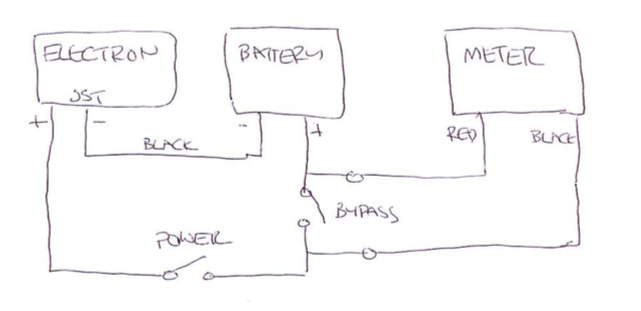 ELECTRON
JST
+
-
BATTERY
-
+
METER
RED
BLACK
BLACK
BYPASS
POWER